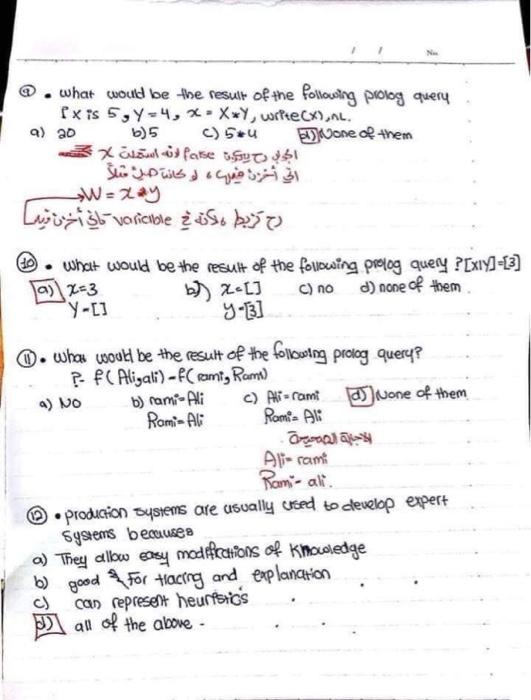 / / No.
⑨ . what would be the result of the following prolog query
? x is 5, Y = 4, x = X * Y, write(x), nL.
a) 20 b) 5 c) 5*4 d) None of them
false لانه استعملت x
W = x * y
variable
⑩ . what would be the result of the following prolog query ? [X|Y]=[3]
a) x=3 b) x=[] c) no d) none of them.
Y=[] y=[3]
⑪ . what would be the result of the following prolog query?
?- f(Ali,ali) = f(rami, Rami)
a) NO b) rami=Ali c) Ali=rami d) None of them
Rami=Ali Rami=Ali
الاجابة الصحيحة
Ali=rami
Rami=ali.
⑫ . production systems are usually used to develop expert
systems because
a) They allow easy modifications of Knowledge
b) good for tracing and explanation
c) can represent heuristics
d) all of the above -